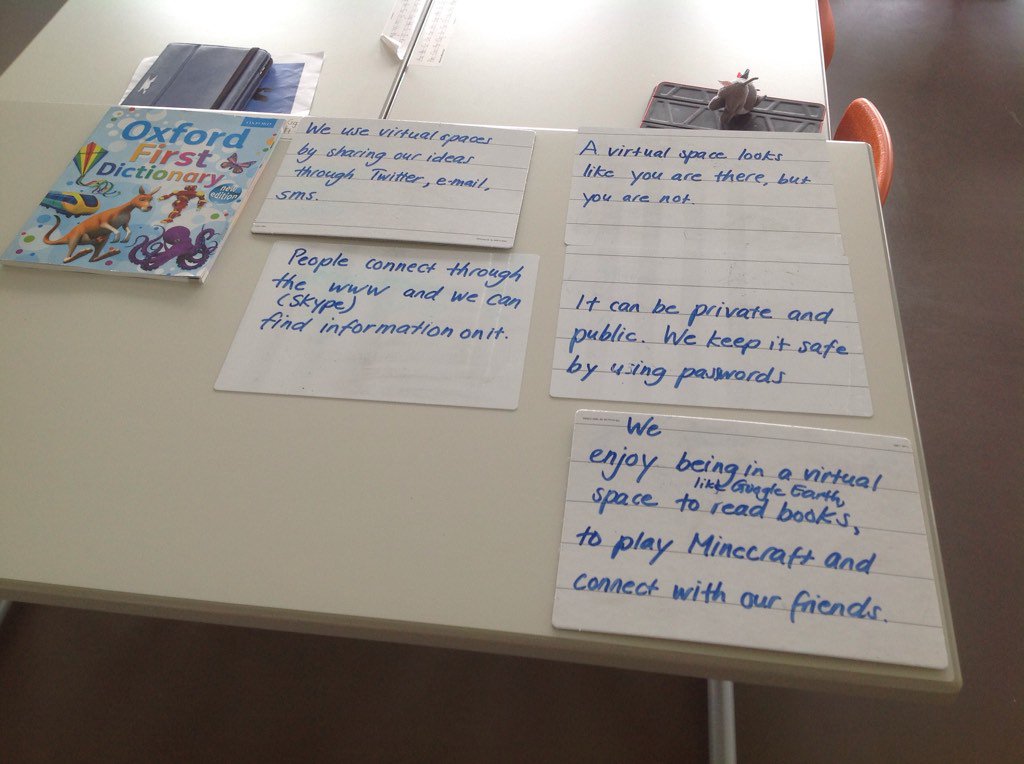 Oxford
First
Dictionary
new
edition
OXFORD
We use virtual spaces
by sharing our ideas
through Twitter, e-mail,
sms.
People connect through
the www and we can
(Skype)
find information on it.
A virtual space looks
like you are there, but
you are not.
It can be private and
public. We keep it safe
by using paswords
We
enjoy being in a virtual
like Google Earth,
space to read books,
to play Minecraft and
connect with our friends.